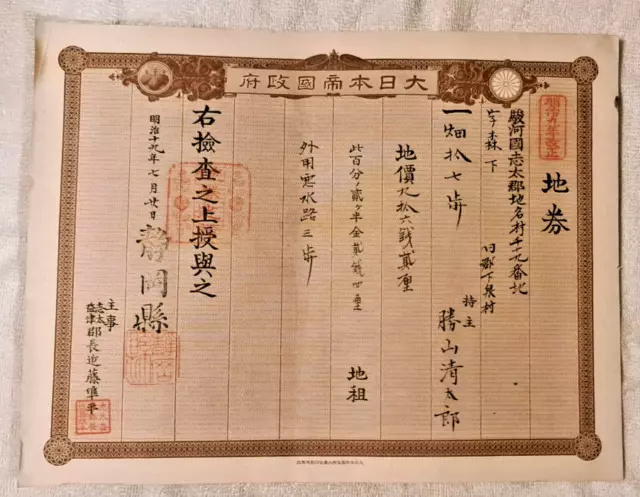 大日本帝國政府
地券
駿河國志太郡地名村千十九番地
字森下
同郡下泉村
一畑拾七歩
持主 勝山清太郎
地價九拾六銭貳厘
此百分ノ貳ヶ半金貳銭四厘
地租
外用悪水路三歩
右檢查之上授與之
明治十九年七月廿日
静岡縣
主事
志太益津郡長近藤準平